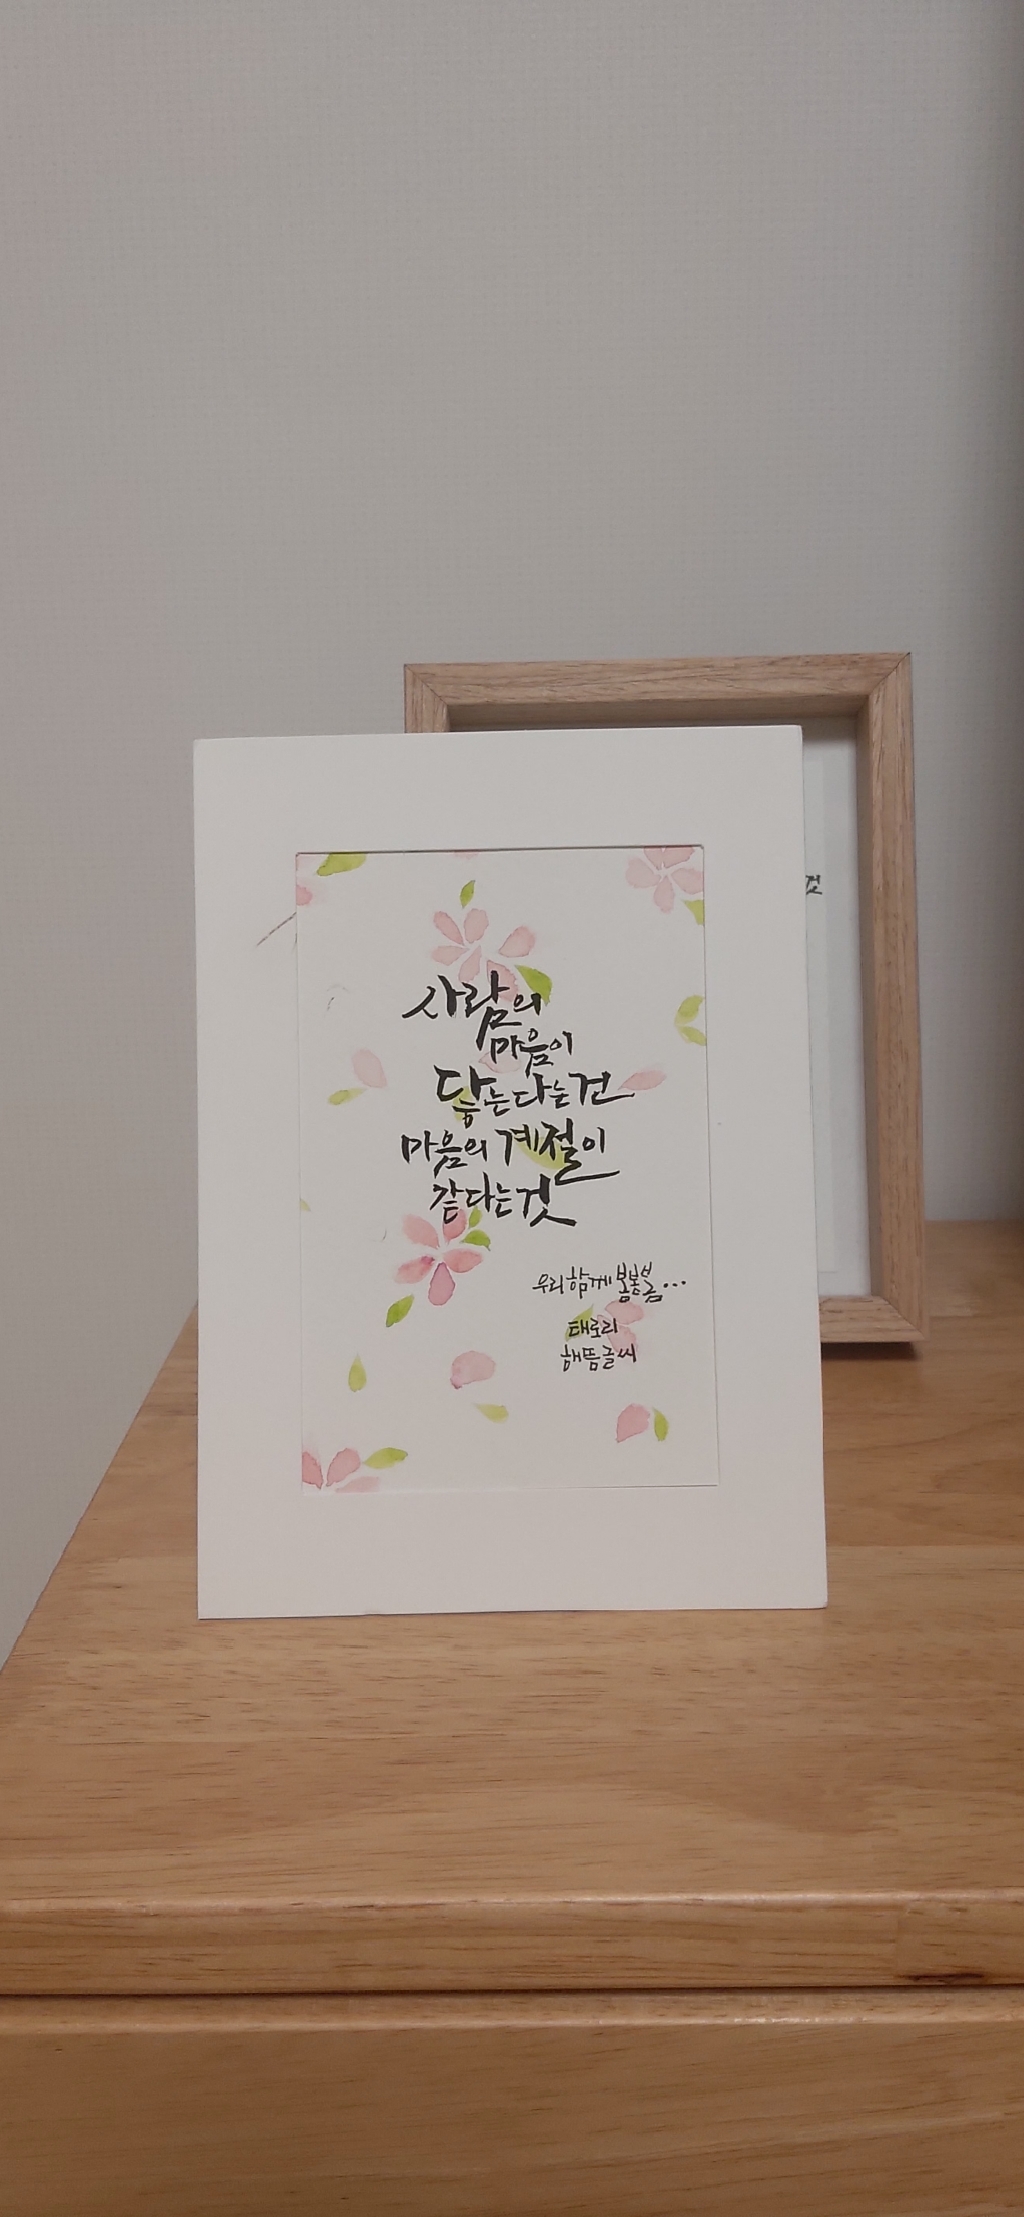 사람의
마음이
닿는다는건
마음의 계절이
같다는것
우리함께 봄봄봄...
태로리
해뜸글씨
것